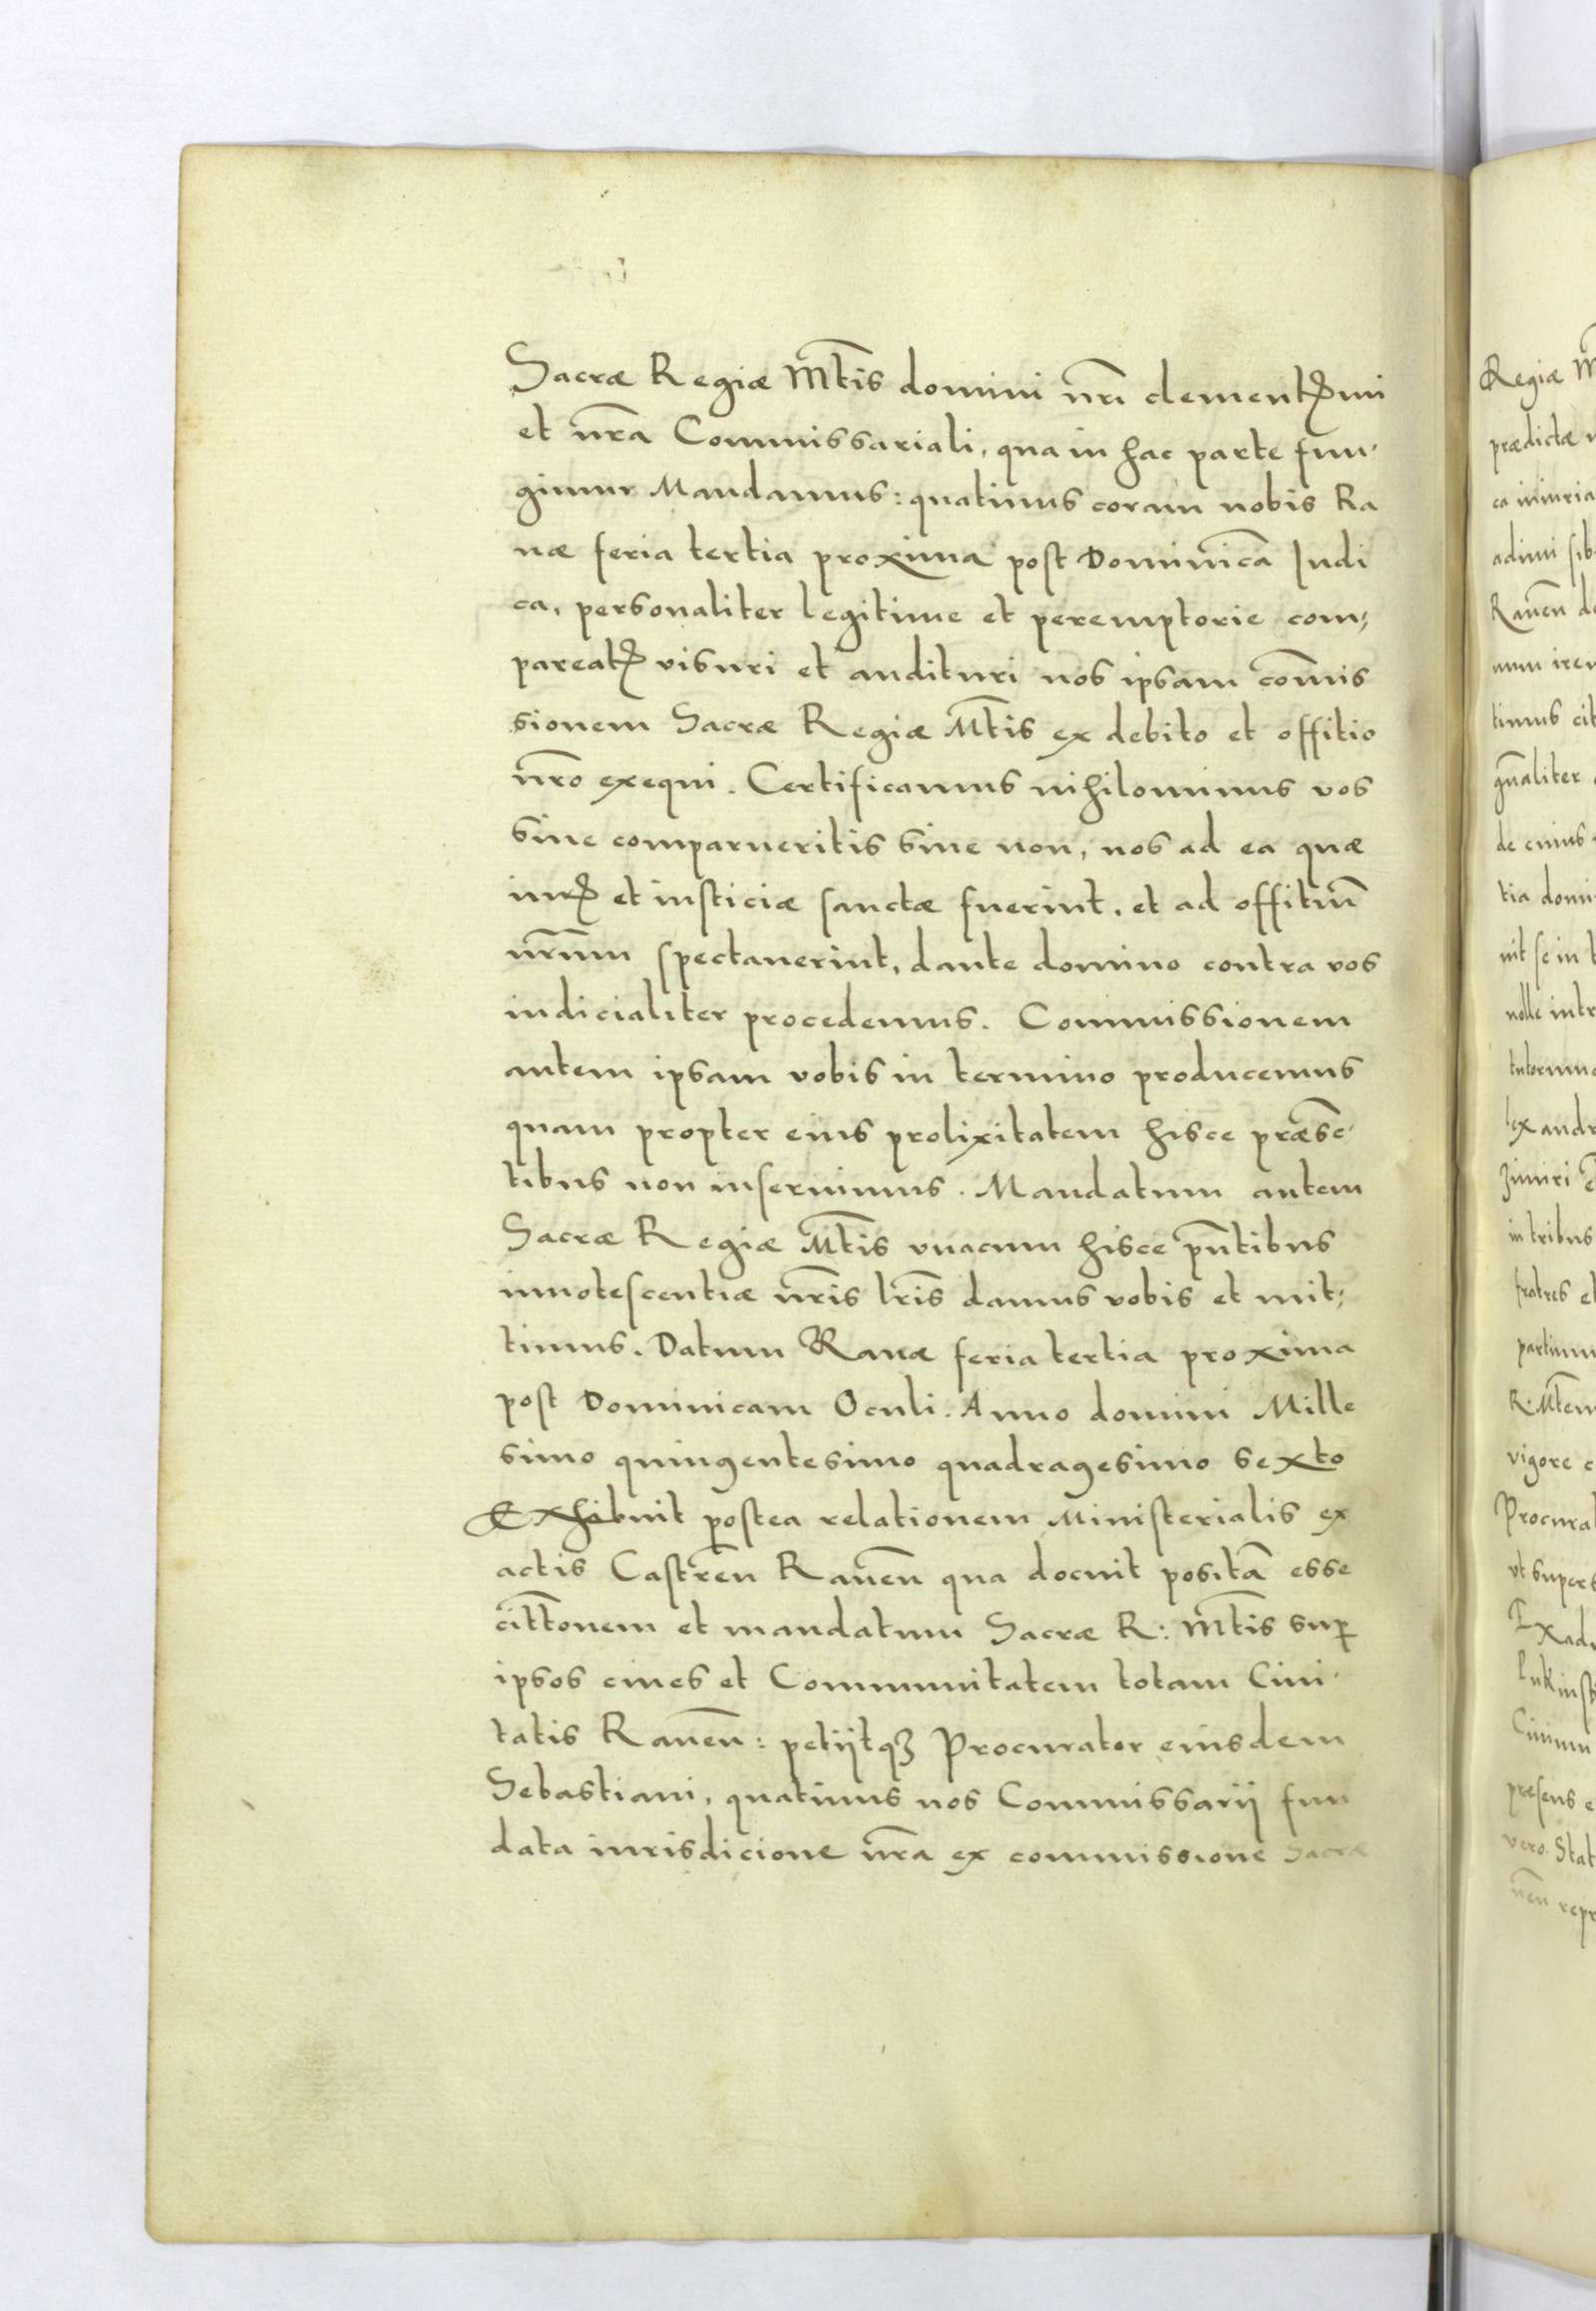 Sacræ Regiæ Mt̃is domini nr̃i clementꝭmi
et nr̃a Commissariali, qua in hac parte fun-
gimur Mandamus: quatinus coram nobis Ra
uæ feria tertia proxima post Dominicã Iudi
ca, personaliter legitime et peremptorie com;
pareatꝭ visuri et audituri nos ipsam com̃is
sionem Sacræ Regiæ Mt̃is ex debito et offitio
nr̃o exequi. Certificamus nihilominus vos
siue comparueritis siue non, nos ad ea quæ
iurꝭ et iusticiæ sanctæ fuerint, et ad offitiũ
nr̃um spectauerint, dante domino contra vos
iudicialiter procedemus. Commissionem
autem ipsam vobis in termino producemus
quam propter eius prolixitatem hisce præsẽ-
tibus non inseruimus. Mandatum autem
Sacræ Regiæ Mt̃is vnacum hisce pñtibus
innotescentiæ nr̃is lr̃is damus vobis et mit;
timus. Datum Rauæ feria tertia proxima
post Dominicam Oculi. Anno domini Mille
simo quingentesimo quadragesimo sexto
Exhibuit postea relationem Ministerialis ex
actis Castreñ Raueñ qua docuit positã esse
citt̃onem et mandatum Sacræ R: Mt̃is suꝑ
ipsos ciues et Communitatem totam Ciui-
tatis Raueñ: petijtqꝫ Procurator eiusdem
Sebastiani, quatinus nos Commissarij fun
data iurisdicione nr̃a ex commissione Sacræ
Regiæ
prædictæ
ca iniuria
adimi
Raueñ
num
timus
gñaliter
de cuius
tia
uit se in
nolle
in tribus
fratres
partium
R: Mt̃em
vigore
Procurat
vt supers
Ciuium
præsens
vero Stat